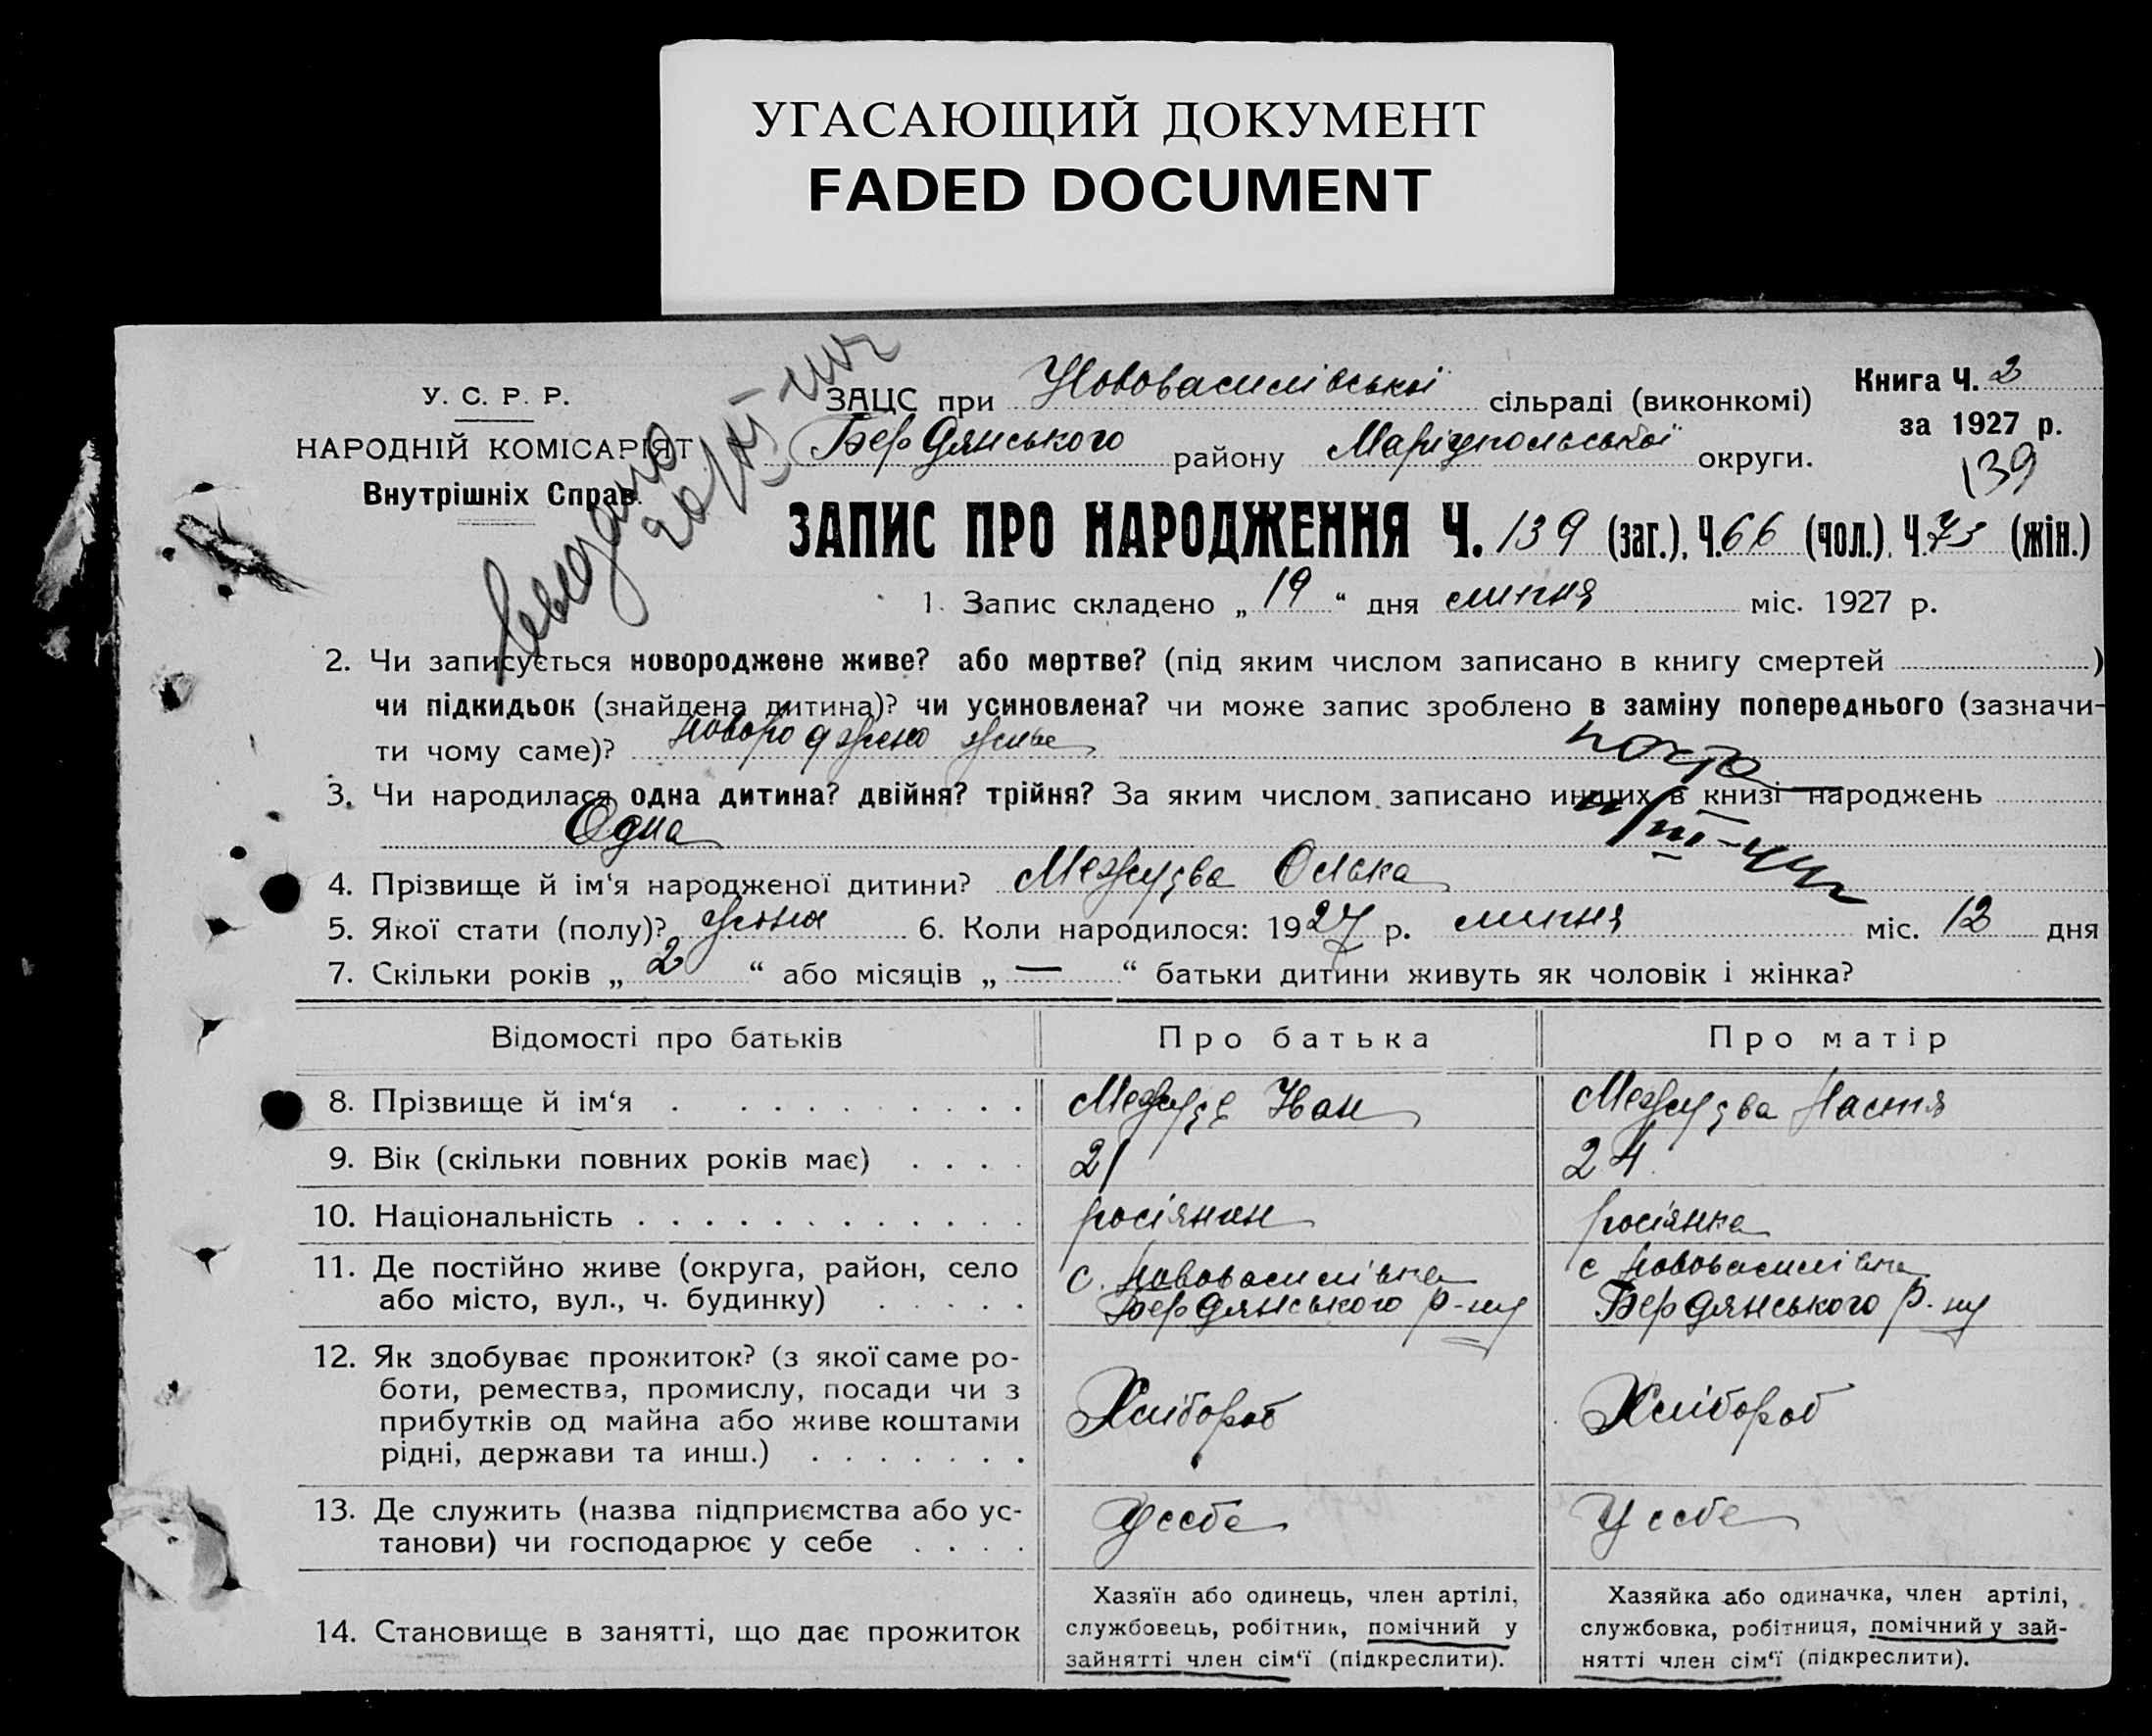 УГАСАЮЩИЙ ДОКУМЕНТ
FADED DOCUMENT
У. С. Р. Р.
НАРОДНІЙ КОМІСАРІЯТ
Внутрішніх Справ.
ЗАЦС при Нововасилівської сільраді (виконкомі)
Бердянського району Маріупольської округи.
Книга Ч. 2
за 1927 р.
139
ЗАПИС ПРО НАРОДЖЕННЯ Ч. 139 (заг.), Ч. 66 (чол.), Ч. 73 (жін.)
1. Запис складено „ 19 “ дня липня міс. 1927 р.
2. Чи записується новороджене живе? або мертве? (під яким числом записано в книгу смертей )
чи підкидьок (знайдена дитина)? чи усиновлена? чи може запис зроблено в заміну попереднього (зазначи-
ти чому саме)? новороджено живе
3. Чи народилася одна дитина? двійня? трійня? За яким числом записано инших в книзі народжень
Одна
4. Прізвище й ім‘я народженої дитини? Олька
5. Якої стати (полу)? жіноя 6. Коли народилося: 1927 р. липня міс. 12 дня
7. Скільки років „ 2 “ або місяців „ — “ батьки дитини живуть як чоловік і жінка?
Відомості про батьків
Про батька
Про матір
8. Прізвище й ім‘я . . . . . . . . . .
Іван
Настя
9. Вік (скільки повних років має) . . . .
21
24
10. Національність . . . . . . . . . . .
росіянин
росіянка
11. Де постійно живе (округа, район, село
або місто, вул., ч. будинку) . . . . .
с. Нововасилівка
Бердянського р-ну
с Нововасилівка
Бердянського р-ну
12. Як здобуває прожиток? (з якої саме ро-
боти, ремества, промислу, посади чи з
прибутків од майна або живе коштами
рідні, держави та инш.) . . . . . . .
Хлібороб
Хлібороб
13. Де служить (назва підприємства або ус-
танови) чи господарює у себе . . . .
У себе
У себе
14. Становище в занятті, що дає прожиток
Хазяїн або одинець, член артілі,
службовець, робітник, помічний у
зайнятті член сім‘ї (підкреслити).
Хазяйка або одиначка, член артілі,
службовка, робітниця, помічний у зай-
нятті член сім‘ї (підкреслити).